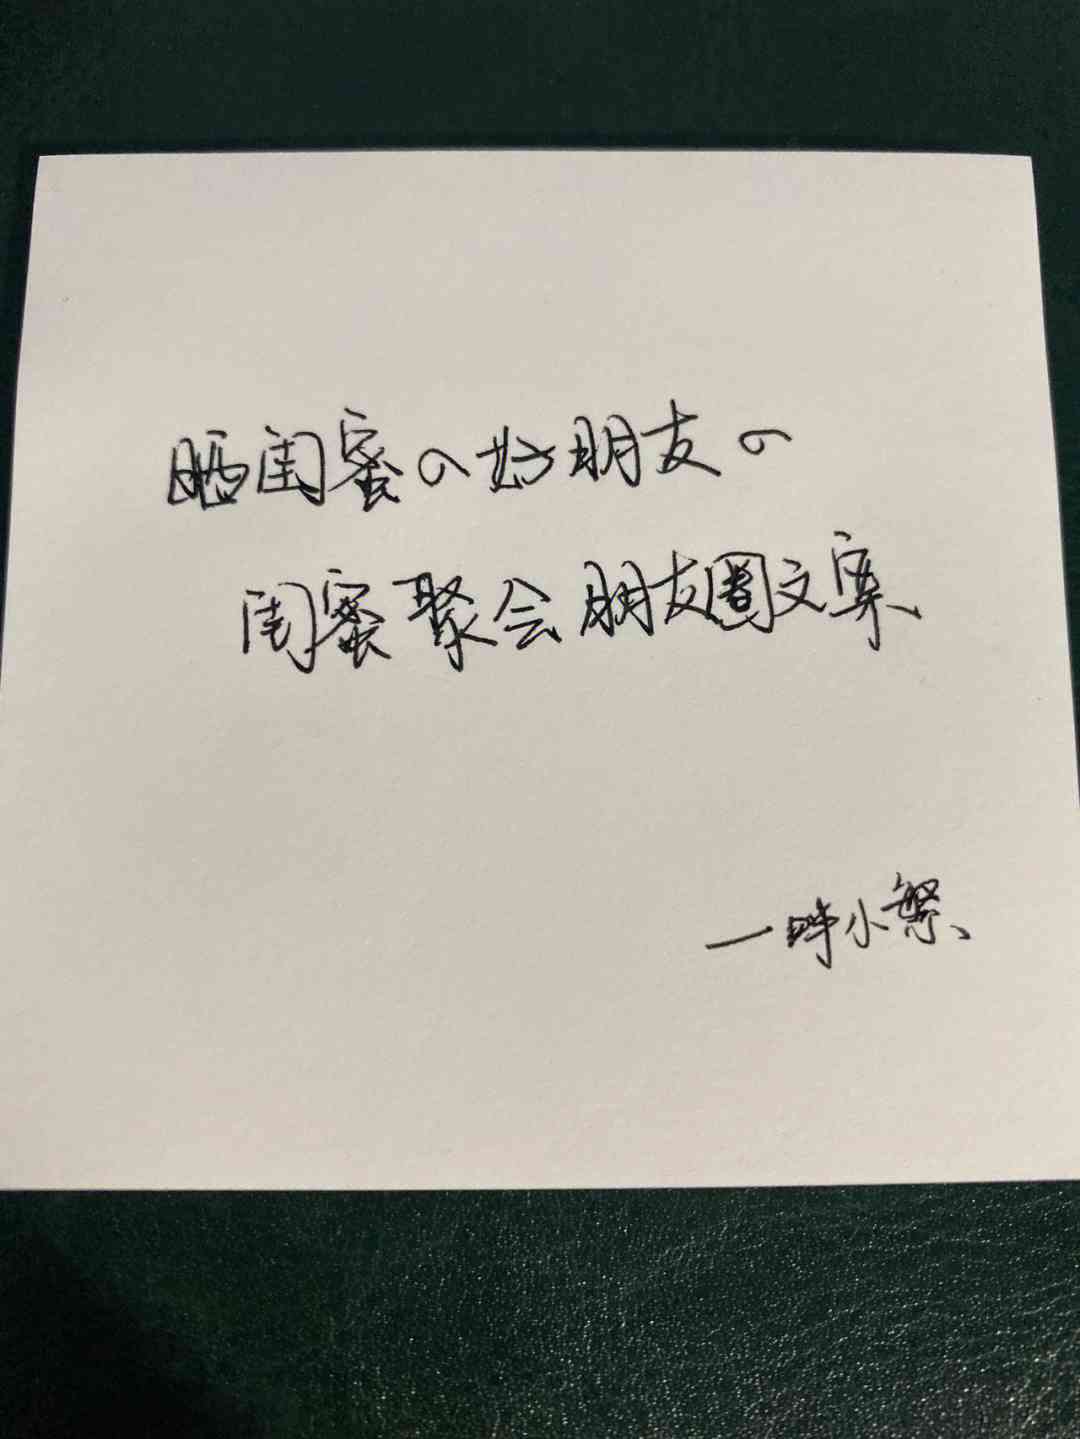 晒闺蜜の好朋友の
闺蜜聚会朋友圈文案
一畔小繁